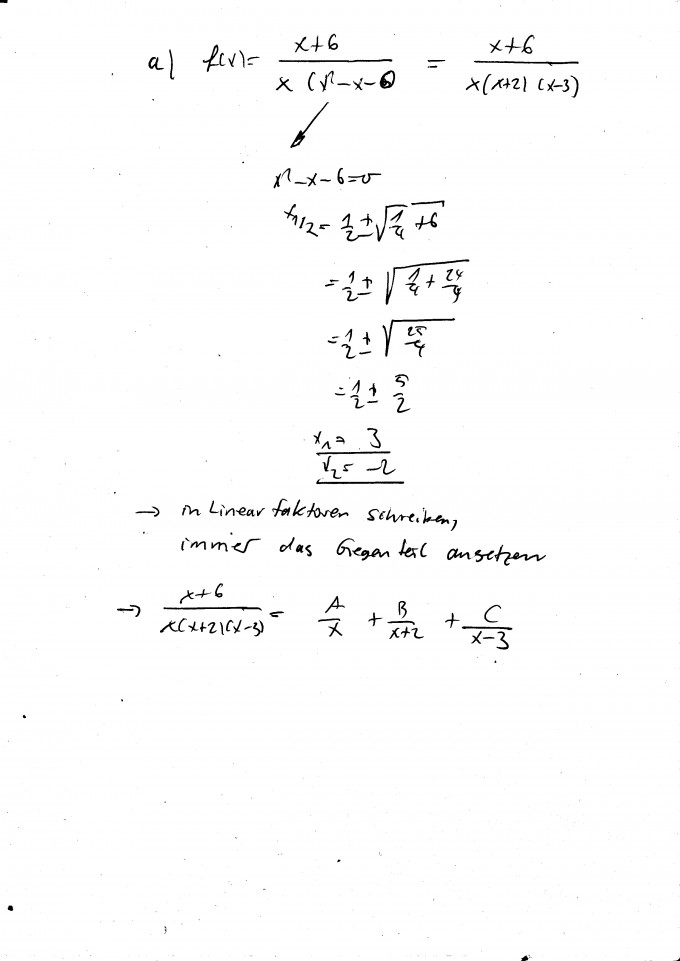 a) f(x)= x+6 / x (x²-x-6) = x+6 / x(x+2) (x-3)
x²-x-6=0
x1/2= 1/2 ± √1/4 +6
= 1/2 ± √1/4 + 24/4
= 1/2 ± √25/4
= 1/2 ± 5/2
x1= 3
x2= -2
→ in Linearfaktoren schreiben,
immer das Gegenteil ansetzen
→ x+6 / x(x+2)(x-3) = A/x + B/x+2 + C/x-3